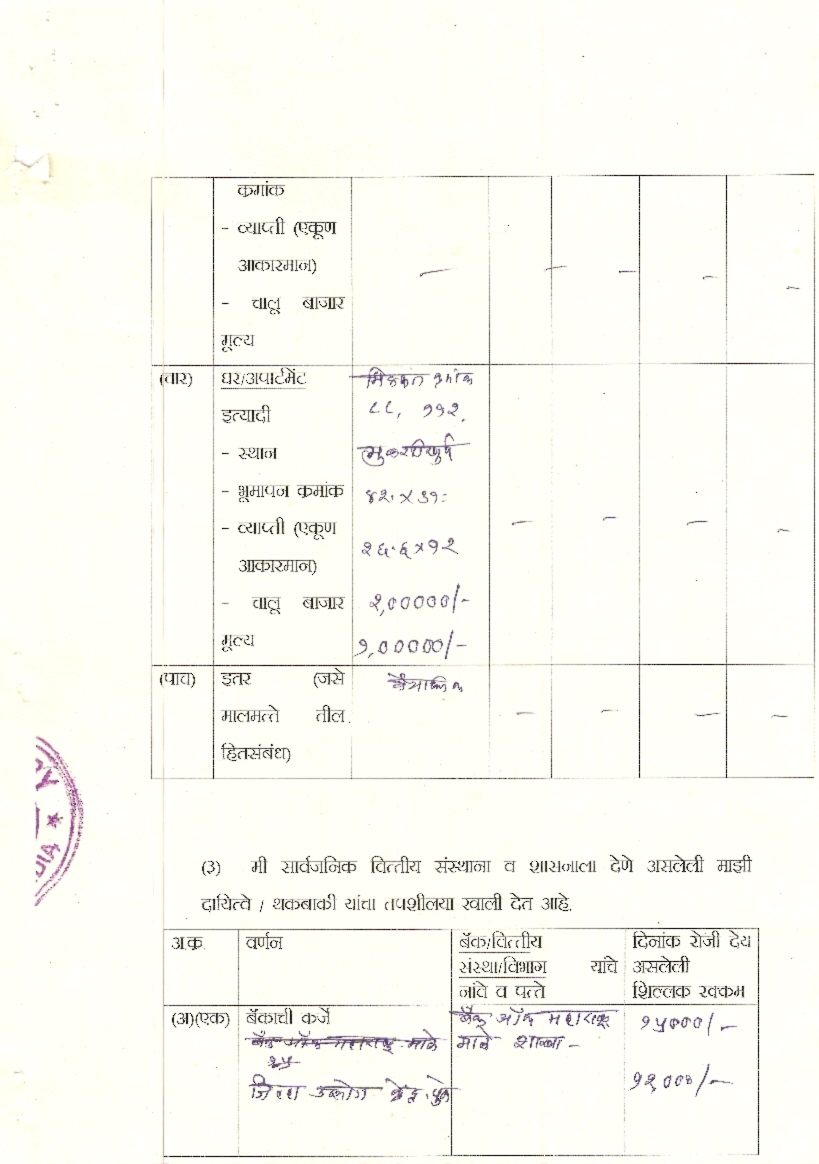 क्रमांक
- व्याप्ती (एकूण
आकारमान)
- चालू बाजार
मूल्य
— — — — —
(चार) घर/अपार्टमेंट
इत्यादी
- स्थान
- भूमापन क्रमांक
- व्याप्ती (एकूण
आकारमान)
- चालू बाजार
मूल्य
मिळकत क्रमांक
८८, ११२.
४२.x३१
२६.६x१२
२,०००००/-
१,०००००/-
— — — —
(पाच) इतर (जसे
मालमत्ते तील
हितसंबंध)
— — — —
(3) मी सार्वजनिक वित्तीय संस्थाना व शासनाला देणे असलेली माझी
दायित्वे / थकबाकी यांचा तपशीलया खाली देत आहे.
अ.क्र. वर्णन
बॅंक/वित्तीय
संस्था/विभाग यांचे
नांवे व पत्ते
दिनांक रोजी देय
असलेली
शिल्लक रक्कम
(अ)(एक) बॅंकाची कर्जे
बँक ऑफ महाराष्ट्र माले
जिल्हा उद्योग केंद्र, पुणे
बँक ऑफ महाराष्ट्र
माले शाखा -
१५०००/-
१२०००/-